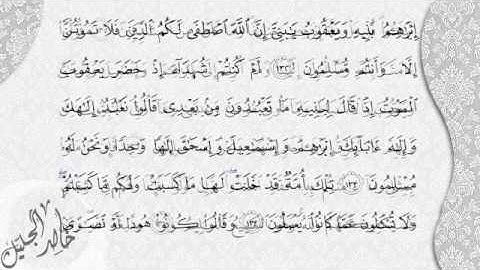 إِبْرَٰهِـۧمُ بَنِيهِ وَيَعْقُوبُ يَـٰبَنِىَّ إِنَّ ٱللَّهَ ٱصْطَفَىٰ لَكُمُ ٱلدِّينَ فَلَا تَمُوتُنَّ
إِلَّا وَأَنتُم مُّسْلِمُونَ ﴿١٣٢﴾ أَمْ كُنتُمْ شُهَدَآءَ إِذْ حَضَرَ يَعْقُوبَ
ٱلْمَوْتُ إِذْ قَالَ لِبَنِيهِ مَا تَعْبُدُونَ مِنۢ بَعْدِى قَالُوا۟ نَعْبُدُ إِلَـٰهَكَ
وَإِلَـٰهَ ءَابَآئِكَ إِبْرَٰهِـۧمَ وَإِسْمَـٰعِيلَ وَإِسْحَـٰقَ إِلَـٰهًا وَٰحِدًا وَنَحْنُ لَهُۥ
مُسْلِمُونَ ﴿١٣٣﴾ تِلْكَ أُمَّةٌ قَدْ خَلَتْ ۖ لَهَا مَا كَسَبَتْ وَلَكُم مَّا كَسَبْتُمْ ۖ
وَلَا تُسْـَٔلُونَ عَمَّا كَانُوا۟ يَعْمَلُونَ ﴿١٣٤﴾ وَقَالُوا۟ كُونُوا۟ هُودًا أَوْ نَصَـٰرَىٰ
حامد الجليل